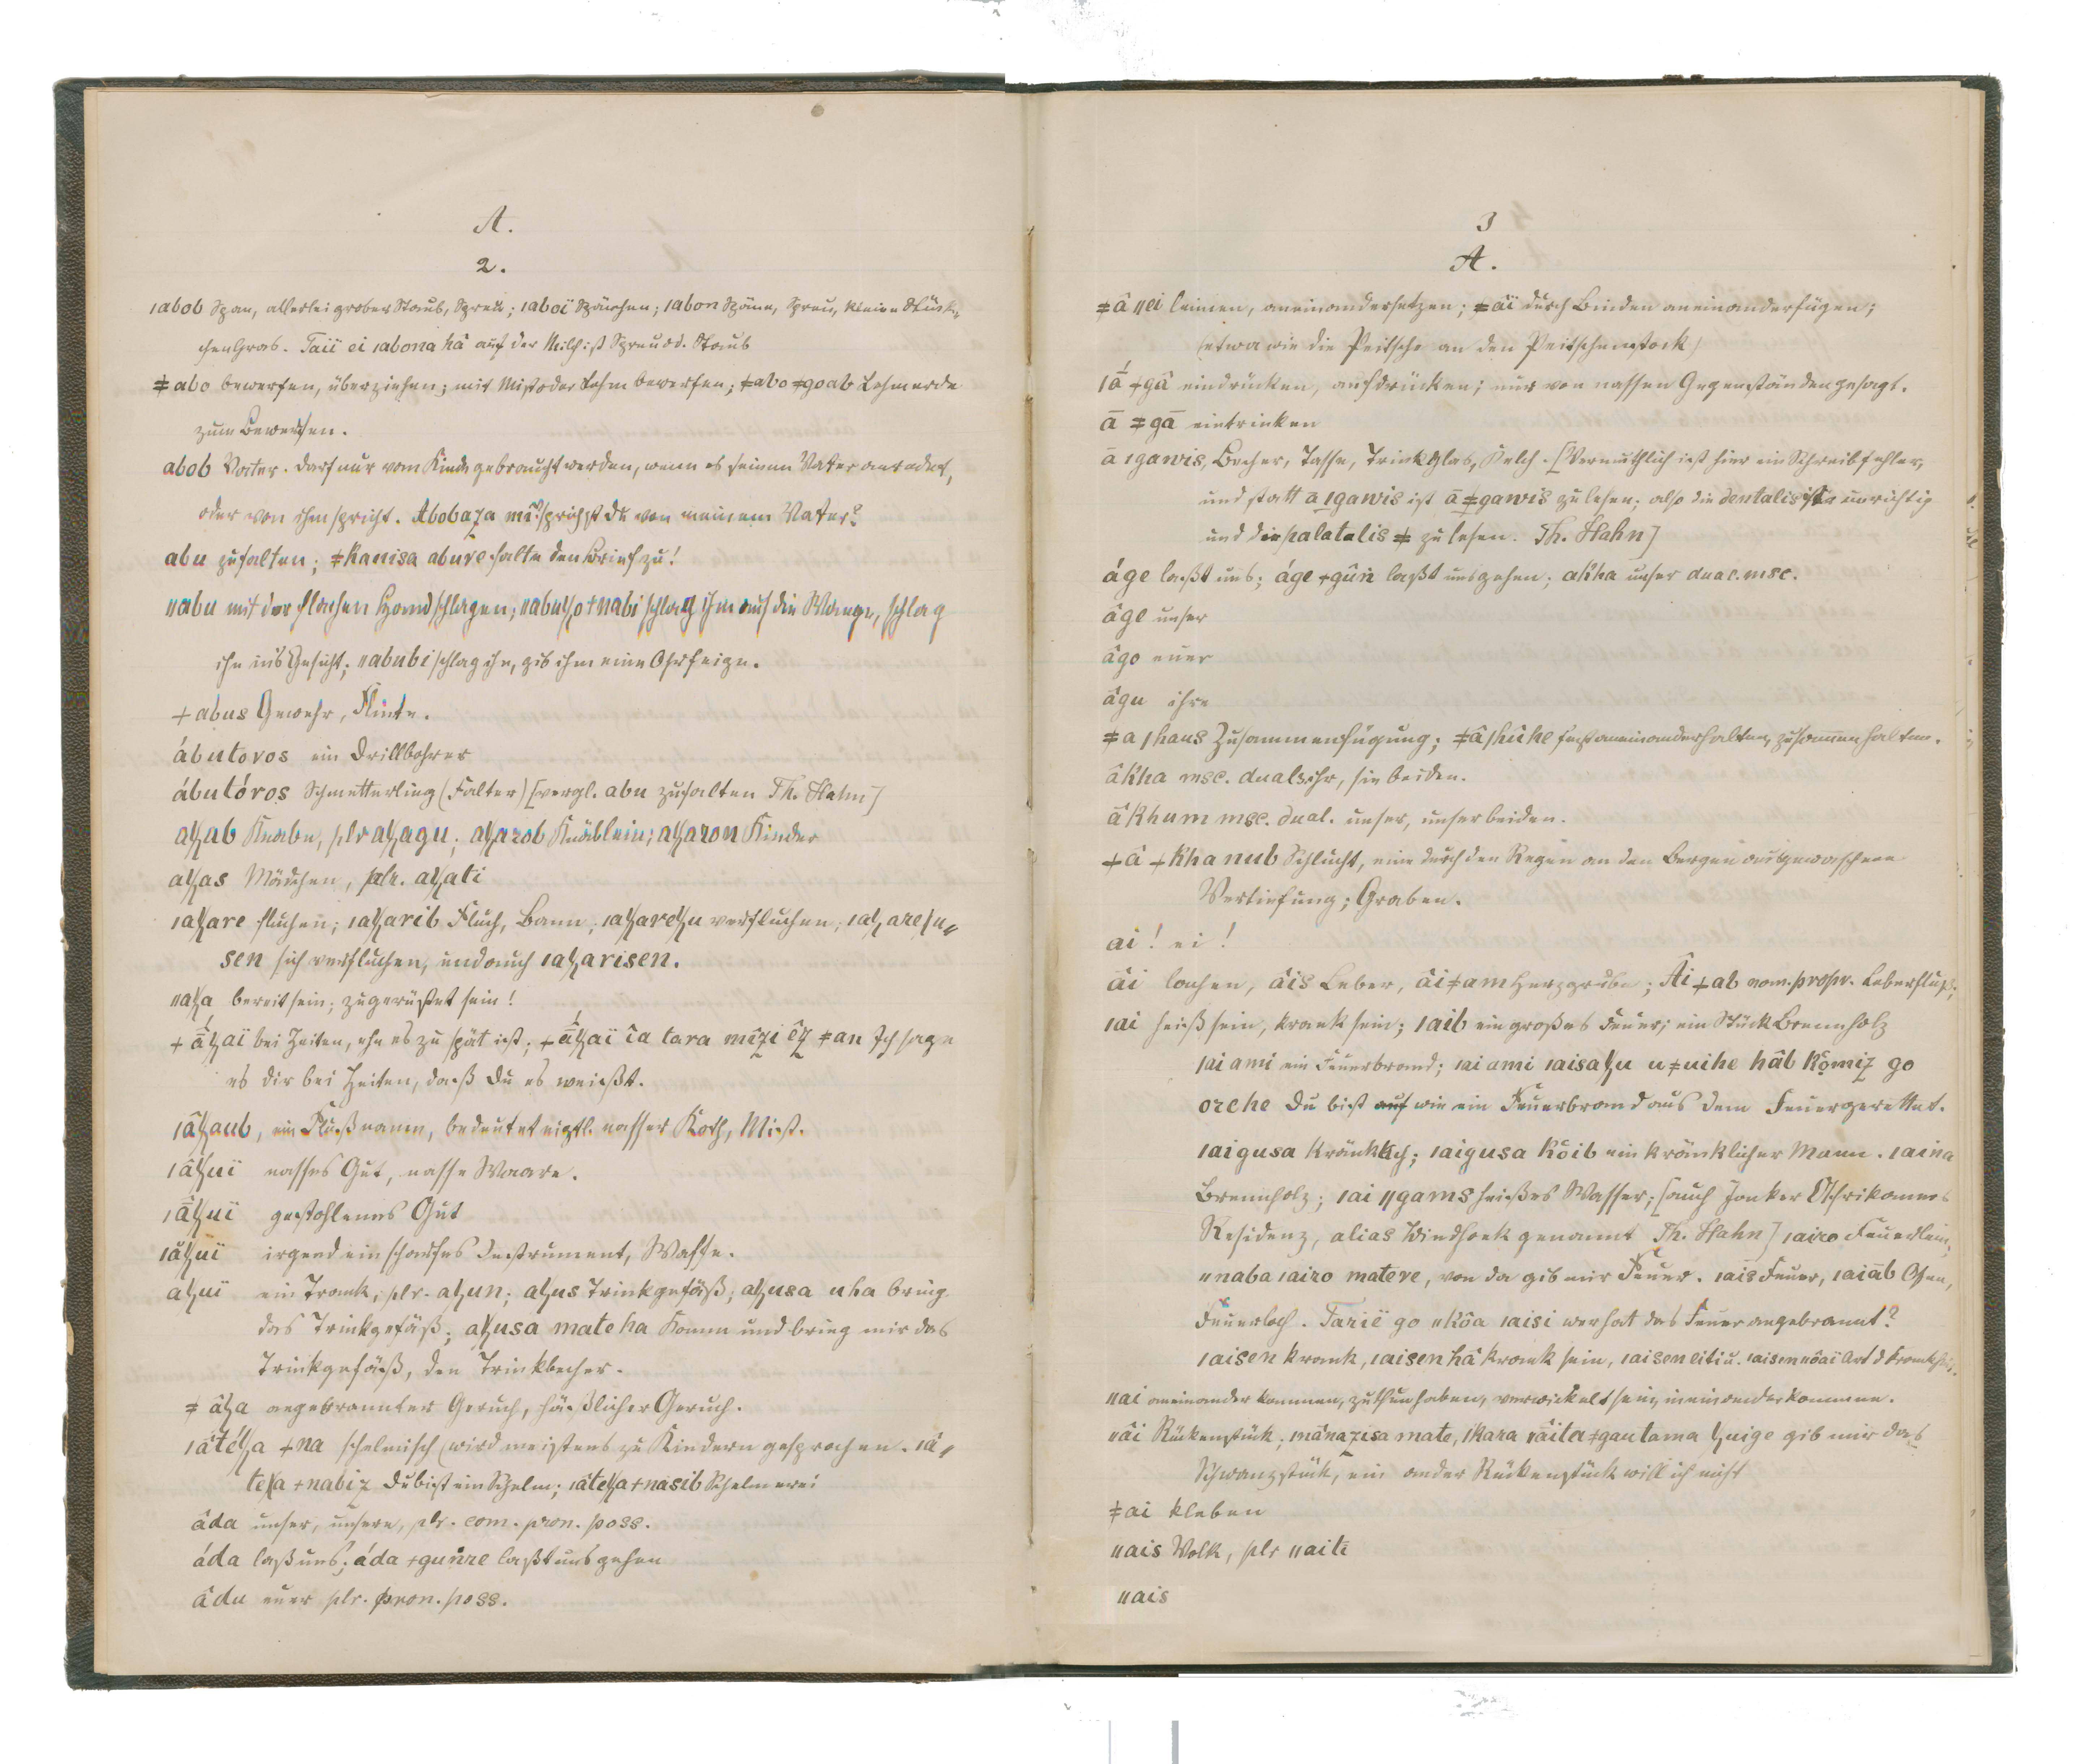 A.
2.
ıabob Span, allerlei grober Staub, Spreu; ıaboï Spänchen; ıabon Späne, Spreu, kleine Stück„
chen Gras. Taiï ei ıabona hâ auf der Milch ist Spreu od. Staub
ǂabo bewerfen, überziehen; mit Mist oder Lehm bewerfen; ǂabo ǂgoab Lehmerde
zum Bewerfen.
abob Vater. Darf nur vom Kinde gebraucht werden, wenn es seinen Vater anredet,
oder von ihm spricht. Abobaʒa mî? sprichst du von meinem Vater?
abu zufalten; ǂkanisa abure falte den Brief zu!
ııabu mit der flachen Hand schlagen; ııabu ɧo +nabi schlag ihm auf die Wange, schlag
ihn ins Gesicht; ııabubi schlag ihn, gib ihm eine Ohrfeige.
+abus Gewehr, Flinte.
ábutoros ein Drillbohrer
ábutóros Schmetterling (Falter) [vergl. abu zufalten Th. Hahn]
aɧab Knabe, plr aɧagu; aɧarob Knäblein; aɧaron Kinder
aɧas Mädchen, plr. aɧati
ıaɧare fluchen; ıaɧarib Fluch, Bann; ıaɧareɧu verfluchen; ıaɧareɧu„
sen sich verfluchen, und auch ıaɧarisen.
ııaɧa bereit sein; zugerüstet sein!
+ā́ɧaï bei Zeiten, ehe es zu spät ist; +ā́ɧaï îa tara mîʒi êʒ ǂan Ich sage
es dir bei Zeiten, daß du es weißt.
ıâɧaub, ein Flußname, bedeutet eigtl. nasser Koth, Mist.
ıâɧuï nasses Gut, nasse Waare.
ıâɧuï gestohlenes Gut
ıâɧuï irgend ein scharfes Instrument, Waffe.
aɧuï ein Trank, plr. aɧun; aɧus Trinkgefäß; aɧusa uha bring
das Trinkgefäß; aɧusa mate ha komm und bring mir das
Trinkgefäß, den Trinkbecher.
ǂâɧa angebrannter Geruch, häßlicher Geruch.
ıâtéɧa +na schelmisch (wird meistens zu Kindern gesprochen. ıâ„
teɧa +nabiʒ du bist ein Schelm; ıâteɧa +nasib Schelmerei
âda unser, unsere, plr. com. pron. poss.
áda laß uns; áda +guñre laßt uns gehen
âdu euer plr. pron. poss.
3
A.
ǂâ ııei leimen, aneinandersetzen; ǂâï durch Binden aneinanderfügen;
(etwa wie die Peitsche an den Peitschenstock)
ıā́ +gâ eindrücken, aufdrücken; nur von nassen Gegenständen gesagt.
ā ǂgā eintrinken
ā ıgawis, Becher, Tasse, Trinkglas, Kelch. [Vermuthlich ist hier ein Schreibfehler,
und statt a ıgawis ist ā ǂgawis zu lesen; also die dentalis ist unrichtig
und die palatalis ǂ zu lesen. Th. Hahn]
áge laßt uns; áge +gûñ laßt uns gehen; akha unser dual. msc.
âge unser
âgo euer
âgu ihre
ǂa ɧhaus Zusammenfügung; ǂâ ɧhûhe fest aneinanderhalten, zusammen halten.
âkha msc. dual. ihr, sie beiden.
âkhum msc. dual. unser, unser beiden.
+â +khanub Schlucht, eine durch den Regen an den Bergen ausgewaschene
Vertiefung; Graben.
ai! ei!
âi lachen, âis Leber, âiǂam Herzgrube; Âi+ab nom. propr. Leberfluß;
ıai heiß sein, krank sein; ıaib ein großes Feuer; ein Stück Brennholz
ıai ami ein Feuerbrand; ıai ami ıaisaɧu uǂuihe hâb kômiʒ go
orehe du bist wie ein Feuerbrand aus dem Feuer gerettet.
ıaigusa kränklich; ıaigusa kôib ein kränklicher Mann. ıaina
Brennholz; ıai ııgams heißes Wasser; [auch Jonker Afrikaners
Residenz, alias Windhoek genannt Th. Hahn] ıairo Feuerlein;
ıınaba ıairo matere, von da gib mir Feuer. ıais Feuer, ıaiāb Ofen,
Feuerloch. Tarië go ııkôa ıaisi wer hat das Feuer angebrannt?
ıaisen krank, ıaisen hâ krank sein, ıaisen eiti u. ıaisen ııôaï Art d Krankheit.
ııai aneinander kommen, zuthun haben, verwickelt sein, ineinander kommen.
ııâi Rückenstück; mânaʒisa mate, ıkara ııâita ǂgautama ɧuige gib mir das
Schwanzstück, ein ander Rückenstück will ich nicht
ǂai kleben
ııais Volk, plr ııaiti
ııais